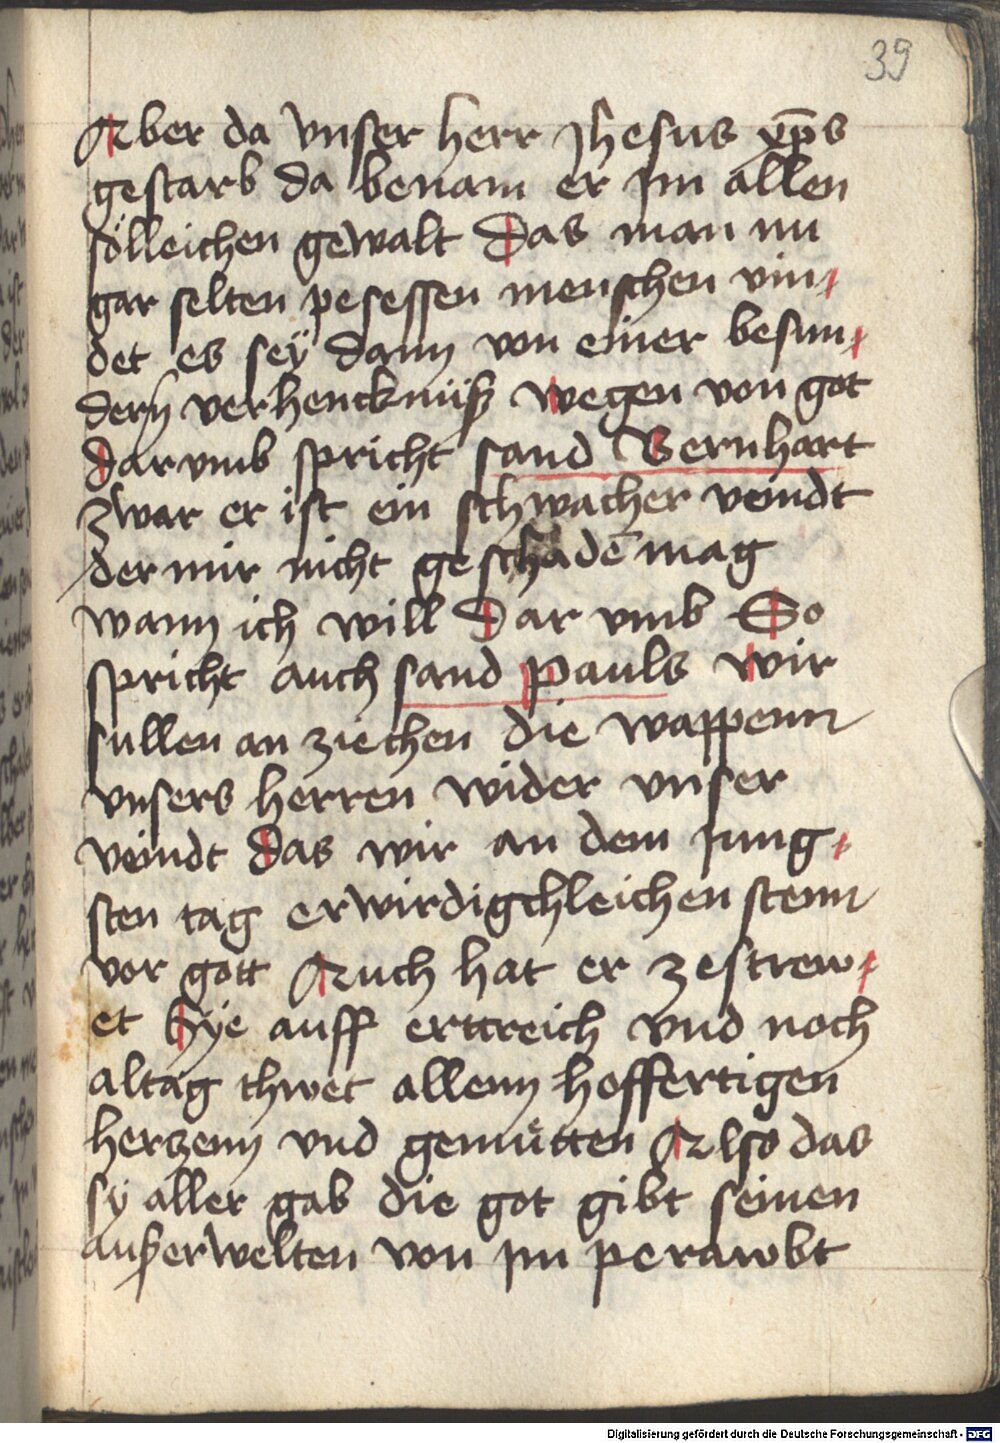 39
Aber da vnser herr Jhesus xp̄s
gestarb da benam er im allen
sölleichen gewalt Das man nu
gar selten pesessen menschen vin¬
det es seÿ dann von einer besun¬
dern̄ verhencknüß wegen von got
Darvmb spricht sand Bernhart
zwar er ist ein schwacher veindt
der mir nicht geschadē mag
wann ich will Dar vmb So
spricht auch sand Pauls wir
sullen an ziechen die wappenn
vnsers herren wider vnser
veindt Das wir an dem Jung¬
sten tag erwirdigchleichen stenn
vor gott Auch hat er zestrew¬
et hye auff ertreich vnd noch
altag thwet allenn hoffertigen
herzenn vnd gemůtten Also das
sy aller gab die got gibt seinen
außerwelten von im perawbt
Digitalisierung gefördert durch die Deutsche Forschungsgemeinschaft - DFG